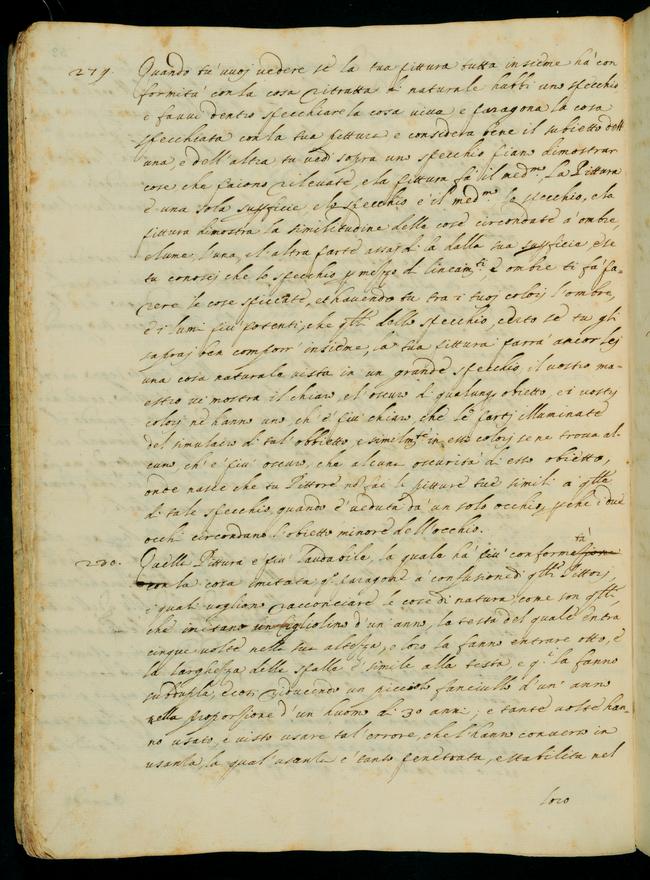 279. Quando tu vuoj vedere se la tua pittura tutta insieme hà con
formità con la cosa ritratta di naturale habbi uno specchio
e favvi dentro specchiare la cosa viva e paragona la cosa
specchiata con la tua pittura e considera bene il subietto dell'
una, e dell'altra tu ved' sopra uno specchio piano dimostrar
cose che paiono rilevate, e la pittura fà il med.mo, La Pittura
è una sola supficie e lo specchio è il med.mo lo specchio, e la
pittura dimostra la similitudine delle cose circondate d'ombre,
e lume, l'una, e l'altra parte assaj di là dalla sua supficia, e se
tu conoscj che lo specchio p mezzo d lineam.ti, e ombre ti fà pa-
rere le cose spiccate, et havendo tu tra i tuoj colorj l'ombre,
e i lumi più potenti, che qlli dello specchio, certo se tu gli
saprai ben comporr' insieme, la tua pittura parrà ancor lej
una cosa naturale vista in un grande specchio, il vostro ma-
estro vi mostra il chiaro, e l'oscuro di qualunq obietto, e i vostrj
colorj ne hanno uno, ch'è più chiaro, che le partj illuminate
del simulacro di tal' obbietto, e similmte in essi colorj se ne trova al-
cuno, ch'è più oscuro, che alcuna oscurità di esso obietto,
onde nasce che tu Pittore nò fai le pitture tue simili a qlle
di tale specchio, quando è veduta da un solo occhio, pche i due
occhi circondano l'obietto minore dell'occhio.
280. Quella Pittura è più laudabile, la quale hà più conformetà
con la cosa imitata qsto paragone à confusione di qlli Pittorj,
i quali vogliono racconciare le cose di natura come son qlli,
che imitano un figliolino d'un'anno, la testa del quale entra
cinque volte nella sua altezza, e loro la fanno entrare otto, e
la larghezza delle spalle è simile alla testa, e qsti la fanno
sudupla, e così riducendo un piccolo fanciullo d'un' anno
nella proporzione d'un huomo di 30 anni; e tante volte han-
no usato, e visto usare tal errore, che l'hanno converso in
usanza, la qual'usanza è tanto penetrata, e stabilita nel
loro